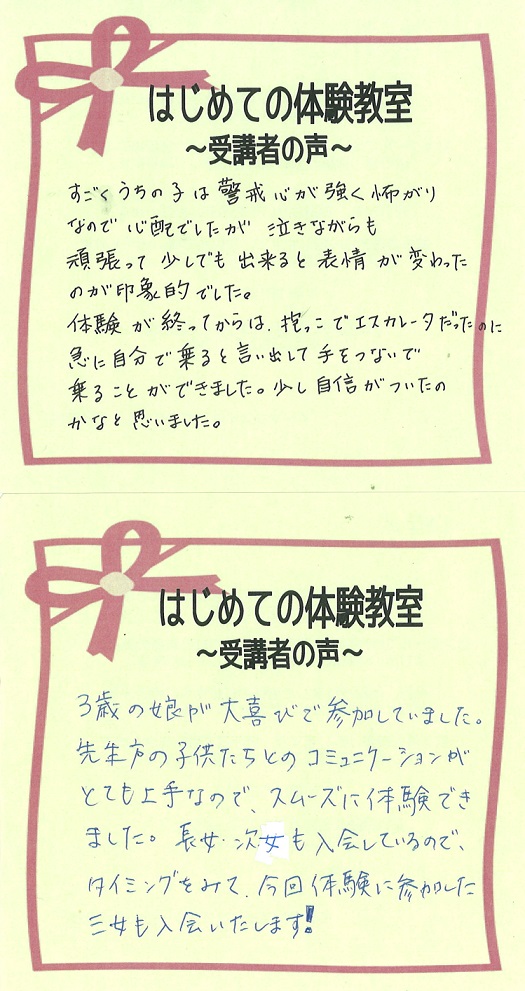 はじめての体験教室
～受講者の声～
すごくうちの子は警戒心が強く怖がり
なので心配でしたが 泣きながらも
頑張って少しでも出来ると表情が変わった
のが印象的でした。
体験が終ってからは、抱っこでエスカレータだったのに
急に自分で乗ると言い出して手をつないで
乗ることができました。少し自信がついたの
かなと思いました。
はじめての体験教室
～受講者の声～
3歳の娘が大喜びで参加していました。
先生方の子供たちとのコミュニケーションが
とても上手なので、スムーズに体験でき
ました。長女・次女も入会しているので、
タイミングをみて、今回体験に参加した
三女も入会いたします!